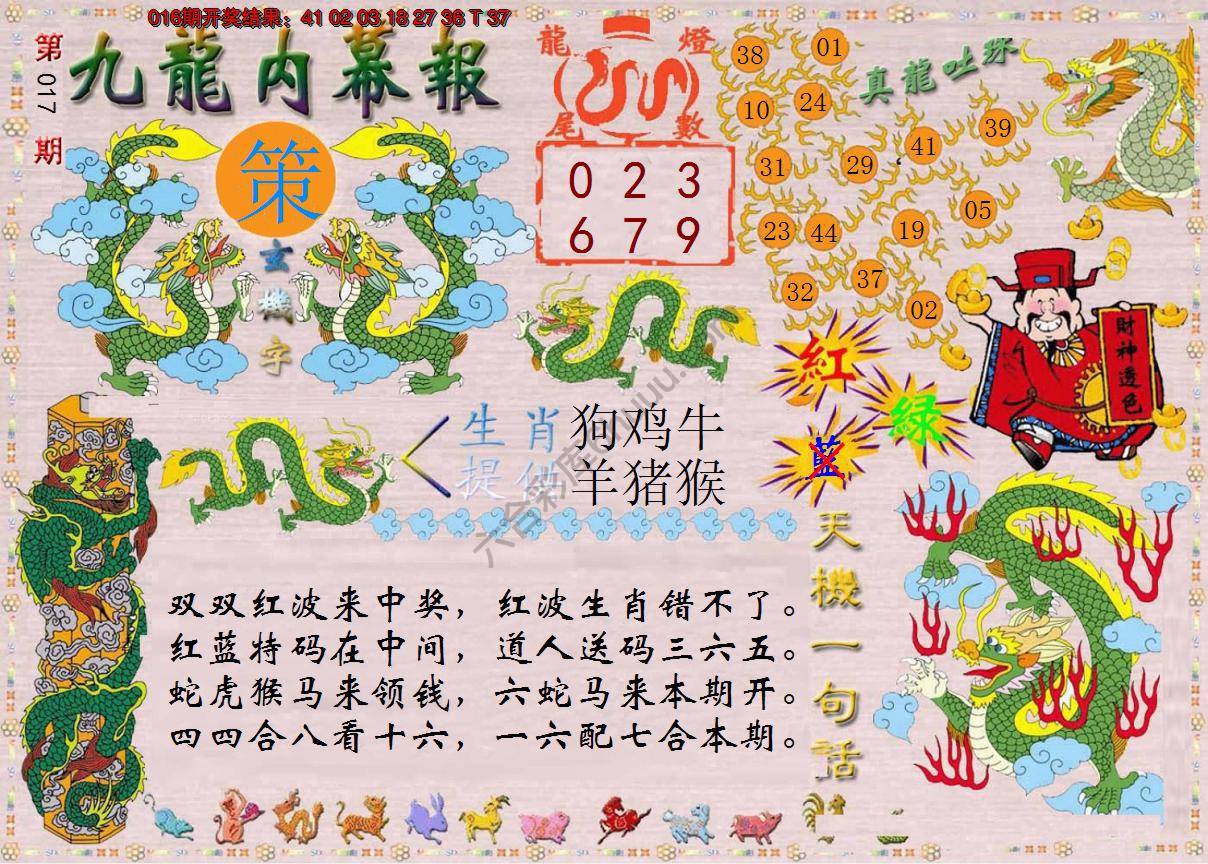 016期开奖结果：41 02 03 18 27 36 T 37
第017期
九龍内幕報
策
玄機字
龍燈尾數
0 2 3
6 7 9
真龍吐珠
38 01
10 24
31 29 41 39
23 44 19 05
32 37 02
財神透色
紅
綠
藍
生肖 狗鸡牛
提供 羊猪猴
双双红波来中奖，红波生肖错不了。
红蓝特码在中间，道人送码三六五。
蛇虎猴马来领钱，六蛇马来本期开。
四四合八看十六，一六配七合本期。
天機一句話